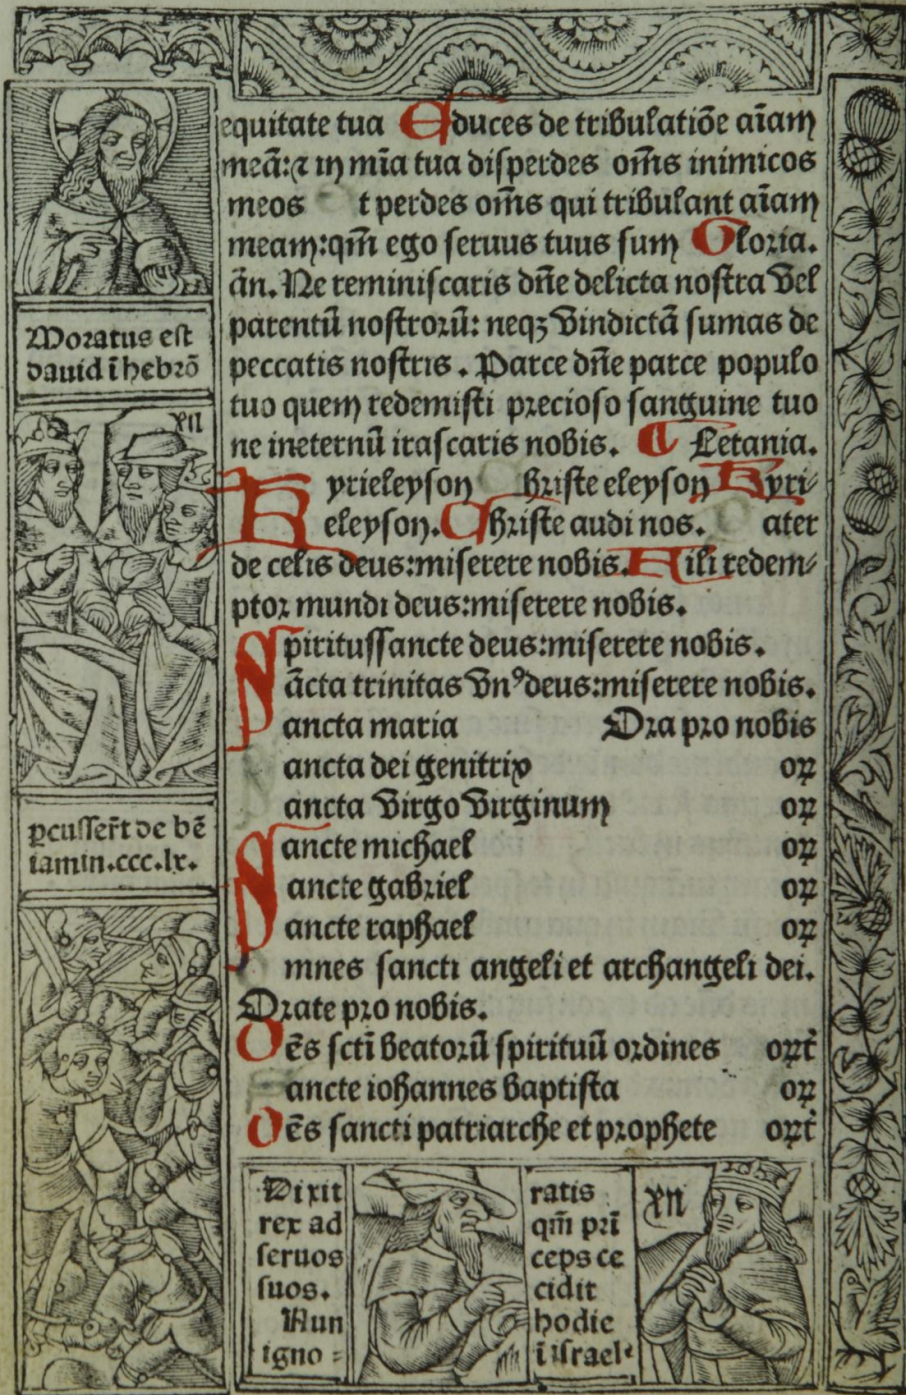 equitate tua Educes de tribulatiõe aĩam
meã:⁊ in mĩa tua disperdes om̃s inimicos
meos t perdes om̃s qui tribulant aĩam
meam:qm̃ ego seruus tuus sum Gloria.
ãn. Ne reminiscaris dñe delicta nostra vel
parentũ nostrorũ: neqꝫ vindictã sumas de
peccatis nostris . Parce dñe parce populo
tuo quem redemisti precioso sanguine tuo
ne ineternũ irascaris nobis. ¶ Letania.
Kyrieleyson Christe eleyson Kyri⸗
eleyson. Christe audi nos. Pater
de celis deus:miserere nobis. Fili redem⸗
ptor mundi deus:miserere nobis.
Spiritussancte deus:miserere nobis.
ãcta trinitas vnꝰdeus:miserere nobis.
ancta maria Ora pro nobis
Sancta dei genitrix oꝝ
ancta virgo virginum oꝝ
Sancte michael oꝝ
ancte gabriel oꝝ
ancte raphael oꝝ
Omnes sancti angeli et archangeli dei.
Orate pro nobis.
Oẽs scti beatorũ spirituũ ordines oꝝt
Sancte iohannes baptista oꝝ
Oẽs sancti patriarche et prophete oꝝt
Moratus est
dauid ĩ hebrõ
ꝑcusser̃t de bẽ
iamin.ccc.lx.
Dixit
rex ad
seruos
suos.
Nun
igno⸗
ratis
qm̃ prĩ
ceps ce
cidit
hodie
ĩ israel